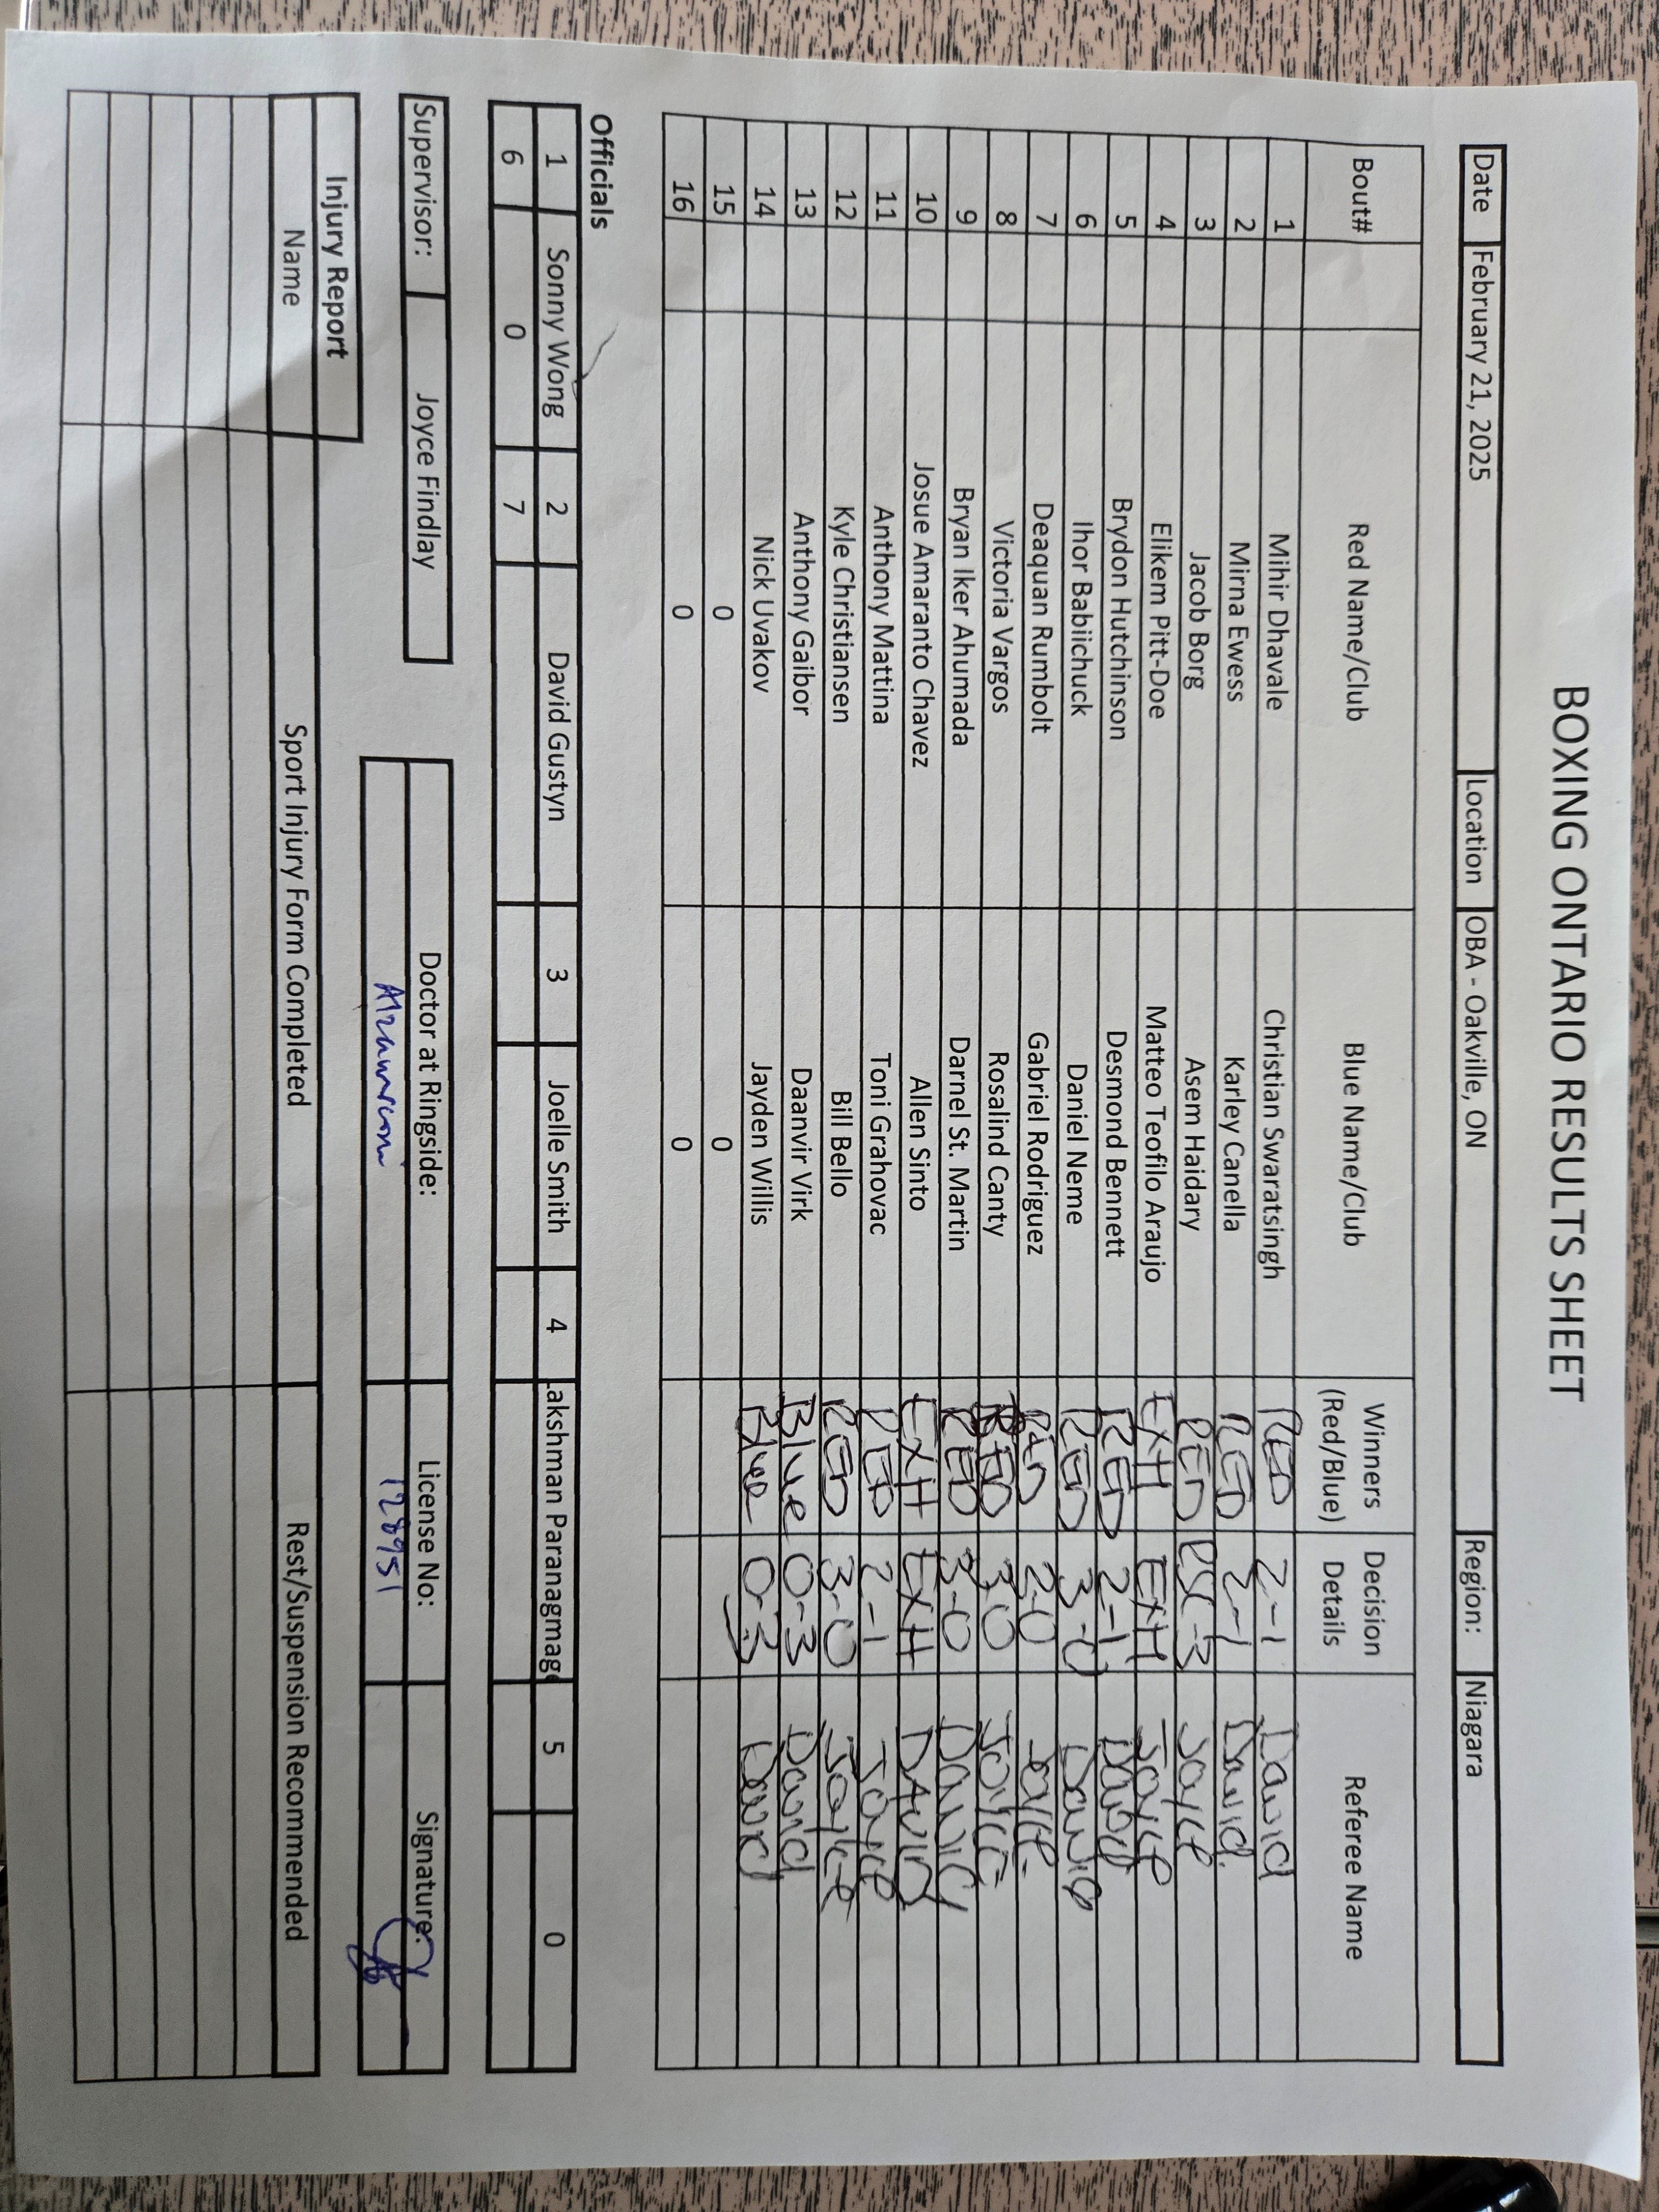 BOXING ONTARIO RESULTS SHEET
Date February 21, 2025 Location OBA - Oakville, ON Region: Niagara
Bout# Red Name/Club Blue Name/Club Winners (Red/Blue) Decision Details Referee Name
1 Mihir Dhavale Christian Swaratsingh RED 2-1 David
2 Mirna Ewess Karley Canella RED 2-1 David
3 Jacob Borg Asem Haidary RED RSC-3 Joyce
4 Elikem Pitt-Doe Matteo Teofilo Araujo EXH EXH Joyce
5 Brydon Hutchinson Desmond Bennett RED 2-1 David
6 Ihor Babiichuck Daniel Neme RED 3-0 David
7 Deaquan Rumbolt Gabriel Rodriguez RED 2-0 Joyce
8 Victoria Vargos Rosalind Canty RED 3-0 Joyce
9 Bryan Iker Ahumada Darnel St. Martin RED 3-0 David
10 Josue Amaranto Chavez Allen Sinto EXH EXH DAVID
11 Anthony Mattina Toni Grahovac RED 2-1 Joyce
12 Kyle Christiansen Bill Bello RED 3-0 Joyce
13 Anthony Gaibor Daanvir Virk Blue 0-3 David
14 Nick Uvakov Jayden Willis Blue 0-3 David
15 0 0
16 0 0
Officials
1 Sonny Wong 2 David Gustyn 3 Joelle Smith 4 akshman Paranagmag 5 0
6 0 7
Supervisor: Joyce Findlay Doctor at Ringside: License No: Signature:
128951
Injury Report
Name Sport Injury Form Completed Rest/Suspension Recommended